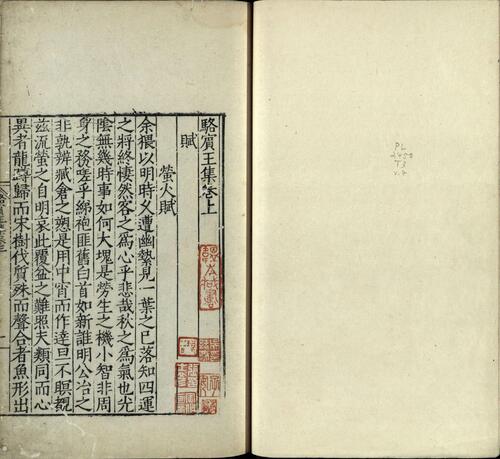 駱賓王集卷上
賦
螢火賦
余猥以明時久遭幽縶見一葉之已落知四運
之將終悽然客之為心乎悲哉秋之為氣也光
陰無幾時事如何大塊是勞生之機小智非周
身之務嗟乎綈袍匪舊白首如新誰明公冶之
非孰辨臧倉之愬是用中宵而作達旦不瞑覩
茲流螢之自明哀此覆盆之難照夫類同而心
異者龍蹲歸而宋樹伐質殊而聲合者魚形出
PL
v.4